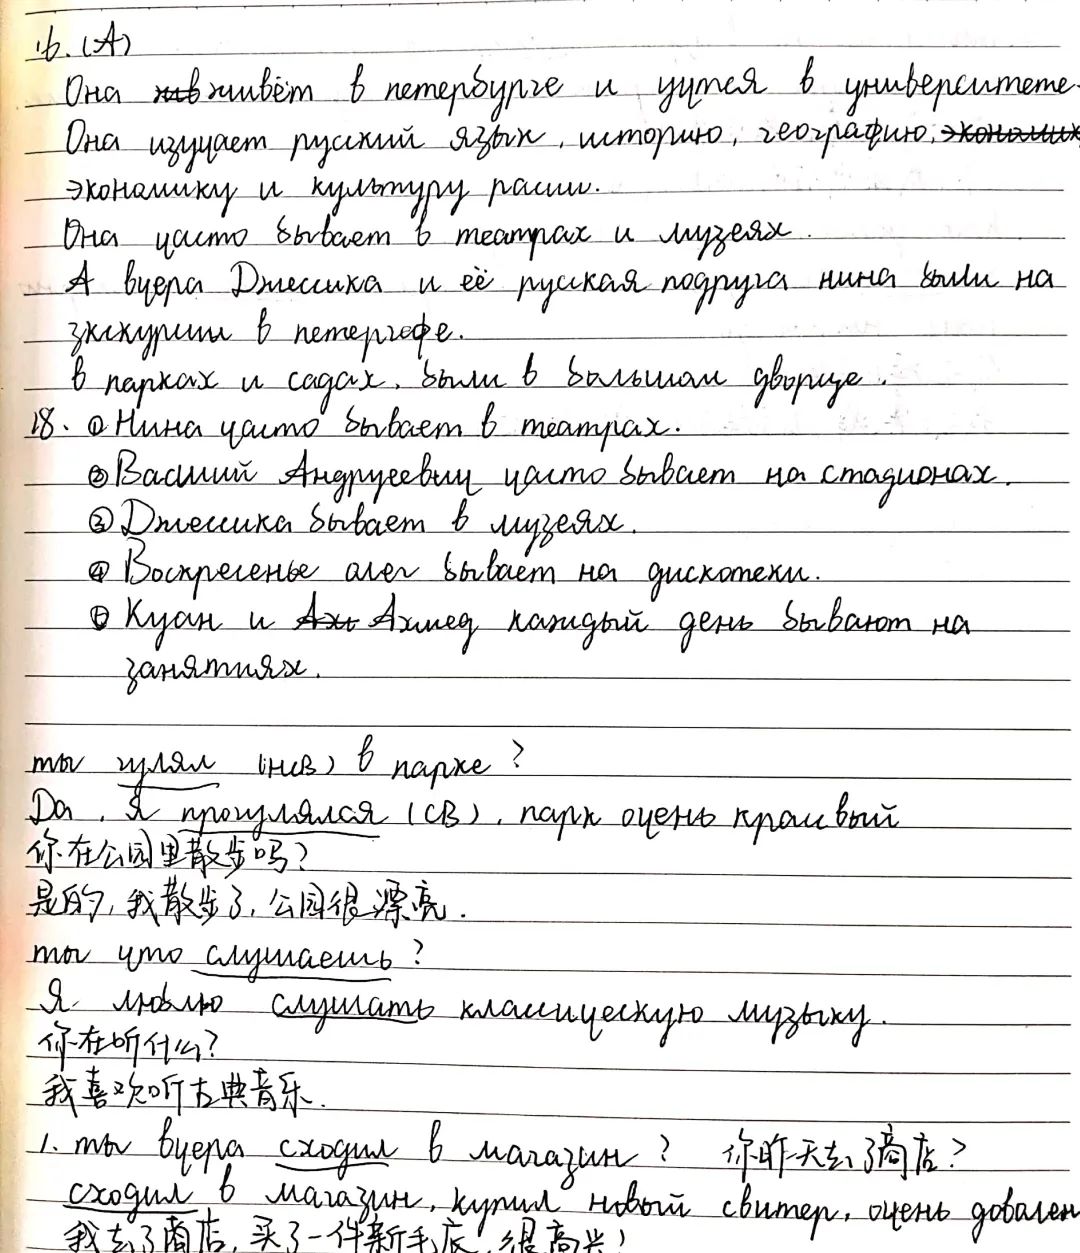 16. (A)
Она живёт в петербурге и учится в университете.
Она изучает русский язык, историю, географию,
экономику и культуру расии.
Она часто бывает в театрах и музеях.
А вчера Джессика и её русская подруга нина были на
экскурсии в петергофе.
в парках и садах. были в большом дворце.
18. ① Нина часто бывает в театрах.
② Василий Андруеевич часто бывает на стадионах.
③ Джессика бывает в музеях.
④ Воскресенье олег бывает на дискотеки.
⑤ Куан и Ахмед каждый день бывают на
занятиях.
ты гулял (НСВ) в парке?
Да, я прогулялся (СВ), парк очень красивый
你在公园里散步吗?
是的,我散步了,公园很漂亮.
ты что слушаешь?
Я люблю слушать классическую музыку.
你在听什么?
我喜欢听古典音乐.
1. ты вчера сходил в магазин? 你昨天去了商店?
сходил в магазин, купил новый свитер, очень доволен
我去了商店,买了一件新毛衣,很高兴!